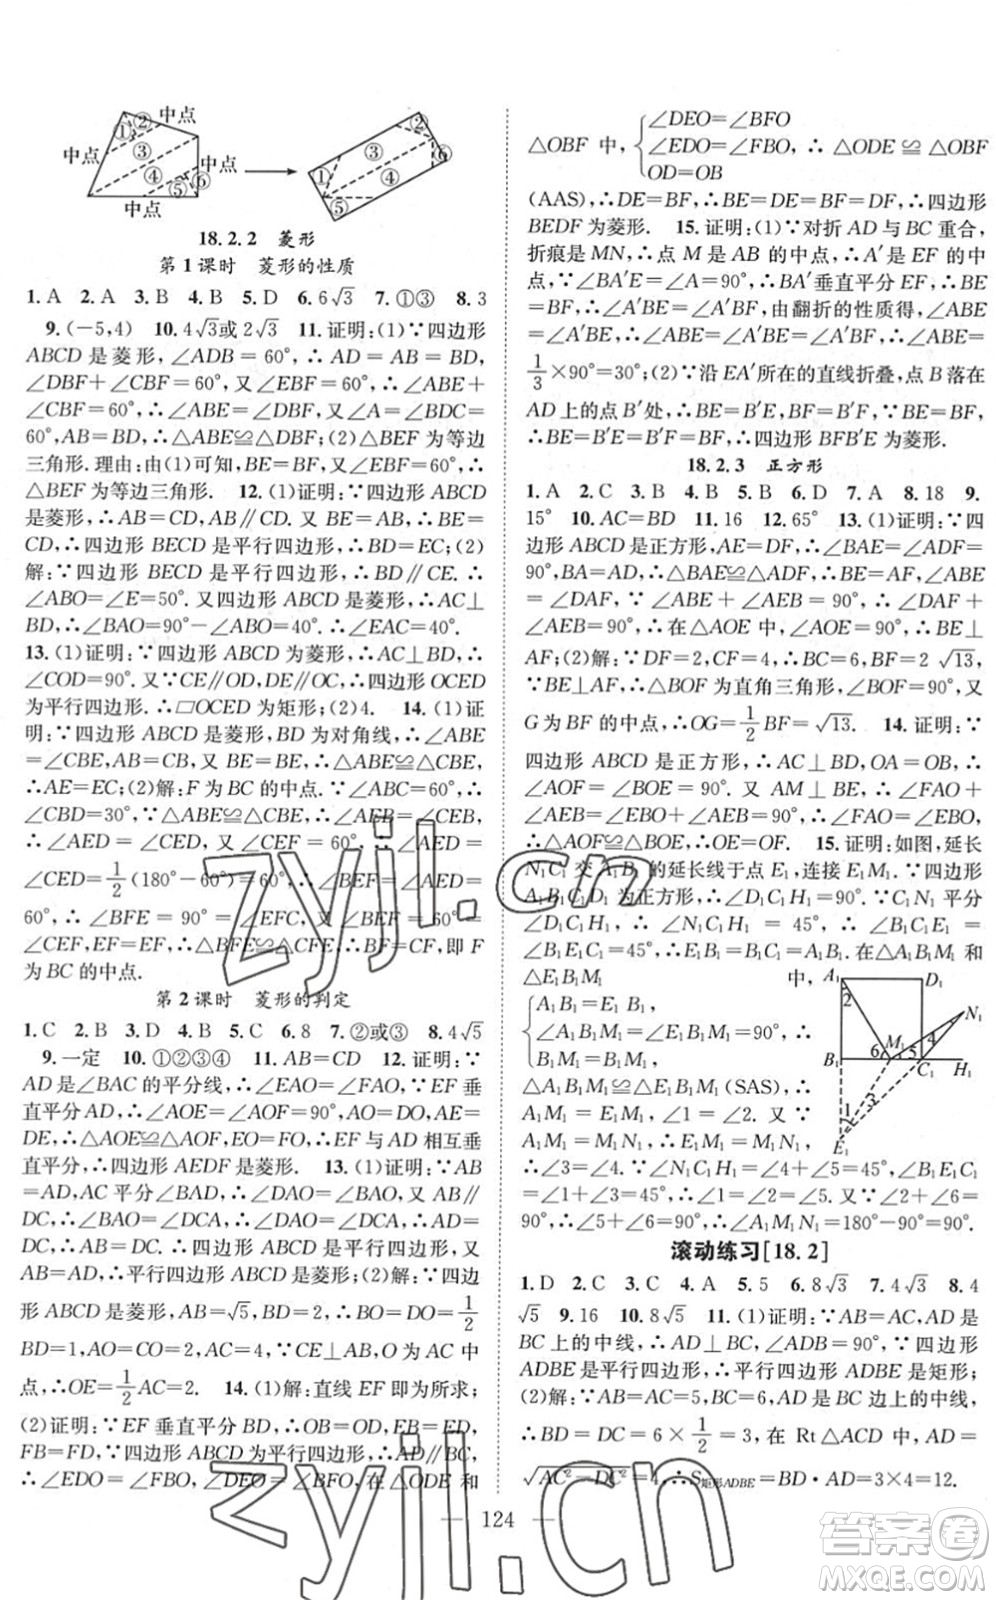 中点
②
①
③
中点
中点
④
⑤
⑥
中点
②
③
⑥
①
④
⑤
18.2.2 菱形
第1课时 菱形的性质
1. A 2. A 3. B 4. B 5. D 6. 6√3 7. ①③ 8. 3
9. (-5,4) 10. 4√3或2√3 11. 证明:(1)∵四边形
ABCD是菱形,∠ADB=60°,∴AD=AB=BD,
∠DBF+∠CBF=60°,又∠EBF=60°,∴∠ABE+
∠CBF=60°,∴∠ABE=∠DBF,又∠A=∠BDC=
60°,AB=BD,∴△ABE≌△DBF;(2)△BEF为等边
三角形.理由:由(1)可知,BE=BF,∠EBF=60°,∴
△BEF为等边三角形. 12. (1)证明:∵四边形ABCD
是菱形,∴AB=CD,AB∥CD.又BE=AB,∴BE=
CD,∴四边形BECD是平行四边形,∴BD=EC;(2)
解:∵四边形BECD是平行四边形,∴BD∥CE.∴
∠ABO=∠E=50°.又四边形ABCD是菱形,∴AC⊥
BD,∴∠BAO=90°-∠ABO=40°.∴∠EAC=40°.
13. (1)证明:∵四边形ABCD为菱形,∴AC⊥BD,∴
∠COD=90°.又CE∥OD,DE∥OC,∴四边形OCED
为平行四边形.∴□OCED为矩形;(2)4. 14. (1)证
明:∵四边形ABCD为菱形,BD为对角线,∴∠ABE
=∠CBE,AB=CB,又BE=BE,∴△ABE≌△CBE,
∴AE=EC;(2)解:F为BC的中点.∵∠ABC=60°,∴
∠CBD=30°,∵△ABE≌△CBE,∴∠AEB=∠CEB,
∴∠AED=∠CED,又∠CEF=60°,∴∠AED=
∠CED=1/2(180°-60°)=60°,∴∠AEB=
60°,∴∠BFE=90°=∠EFC,又∠BEF=
∠CEF,EF=EF,∴△BFE≌△CFE,∴BF=CF,即F
为BC的中点.
第2课时 菱形的判定
1. C 2. B 3. D 4. B 5. C 6. 8 7. ②或③ 8. 4√5
9. 一定 10. ①②③④ 11. AB=CD 12. 证明:∵
AD是∠BAC的平分线,∴∠EAO=∠FAO,∵EF垂
直平分AD,∴∠AOE=∠AOF=90°,AO=DO,AE=
DE,∴△AOE≌△AOF,EO=FO,∴EF与AD相互垂
直平分,∴四边形AEDF是菱形. 13. (1)证明:∵AB
=AD,AC平分∠BAD,∴∠BAO=∠DAO,∵AB∥
DC,∴∠BAO=∠DCA,∴∠DAO=∠DCA,∴AD=
DC,∴AB=DC.∴四边形ABCD是平行四边形,又
AB=AD,∴平行四边形ABCD是菱形;(2)解:∵四边
形ABCD是菱形,AB=√5,BD=2,∴BO=DO=1/2
BD=1,AO=CO=2,又∵CE⊥AB,O为AC中
点,∴OE=1/2AC=2. 14. (1)解:直线EF即为所求;
(2)证明:∵EF垂直平分BD,∴OB=OD,EB=ED,
FB=FD,∵四边形ABCD为平行四边形,∴AD∥BC,
∴∠EDO=∠FBO,∠DEO=∠BFO,在△ODE和
△OBF中,{∠DEO=∠BFO
∠EDO=∠FBO,∴△ODE≌△OBF
OD=OB
(AAS),∴DE=BF,∴BE=DE=BF=DF,∴四边形
BEDF为菱形. 15. 证明:(1)∵对折AD与BC重合,
折痕是MN,∴点M是AB的中点,∴A′是EF的中
点,∵∠BA′E=∠A=90°,∴BA′垂直平分EF,∴BE=
BF,∴∠A′BE=∠A′BF,由翻折的性质得,∠ABE=
∠A′BE,∴∠ABE=∠A′BE=∠A′BF,∴∠ABE=
1/3×90°=30°;(2)∵沿EA′所在的直线折叠,点B落在
AD上的点B′处,∴BE=B′E,BF=B′F,∵BE=BF,
∴BE=B′E=B′F=BF,∴四边形BFB′E为菱形.
18.2.3 正方形
1. A 2. C 3. B 4. D 5. B 6. D 7. A 8. 18 9.
15° 10. AC=BD 11. 16 12. 65° 13. (1)证明:∵四
边形ABCD是正方形,AE=DF,∴∠BAE=∠ADF=
90°,BA=AD,∴△BAE≌△ADF,∴BE=AF,∠ABE
=∠DAF,∵∠ABE+∠AEB=90°,∴∠DAF+
∠AEB=90°,∴在△AOE中,∠AOE=90°,∴BE⊥
AF;(2)解:∵DF=2,CF=4,∴BC=6,∴BF=2√13,
∵BE⊥AF,∴△BOF为直角三角形,∠BOF=90°,又
G为BF的中点,∴OG=1/2BF=√13. 14. 证明:∵
四边形ABCD是正方形,∴AC⊥BD,OA=OB,∴
∠AOF=∠BOE=90°.又AM⊥BE,∴∠FAO+
∠AEB=∠EBO+∠AEB=90°,∴∠FAO=∠EBO,
∴△AOF≌△BOE,∴OE=OF. 15. 证明:如图,延长
N₁C₁交A₁B₁的延长线于点E₁,连接E₁M₁.∵四边形
A₁B₁C₁D₁为正方形,∴∠D₁C₁H₁=90°.∵C₁N₁平分
∠D₁C₁H₁,∴∠N₁C₁H₁=45°,∴∠B₁C₁E₁=
∠B₁E₁C₁=45°,∴B₁E₁=B₁C₁=A₁B₁.在△A₁B₁M₁和
△E₁B₁M₁中,
{A₁B₁=E₁B₁
∠A₁B₁M₁=∠E₁B₁M₁=90°,∴
B₁M₁=B₁M₁
△A₁B₁M₁≌△E₁B₁M₁(SAS),∴
A₁M₁=E₁M₁,∠1=∠2.又∵
A₁M₁=M₁N₁,∴E₁M₁=M₁N₁,
∴∠3=∠4.∵∠N₁C₁H₁=∠4+∠5=45°,∠B₁E₁C₁
=∠1+∠3=45°,∴∠1=∠5.又∵∠2+∠6=
90°,∴∠5+∠6=90°,∴∠A₁M₁N₁=180°-90°=90°.
A₁
D₁
2
N₁
M₁
4
6
5
B₁
C₁
H₁
1
3
E₁
滚动练习[18.2]
1. D 2. C 3. C 4. A 5. 5 6. 8√3 7. 4√3 8. 4
√5 9. 16 10. 8√5 11. (1)证明:∵AB=AC,AD是
BC上的中线,∴AD⊥BC,∠ADB=90°,∵四边形
ADBE是平行四边形,∴平行四边形ADBE是矩形;
(2)解:∵AB=AC=5,BC=6,AD是BC边上的中线,
∴BD=DC=6×1/2=3,在Rt△ACD中,AD=
√AC²-DC²=4,∴S矩形ADBE=BD·AD=3×4=12.
124
zyjl.cn
zyjl.cn
答案圈
MXQE.COM